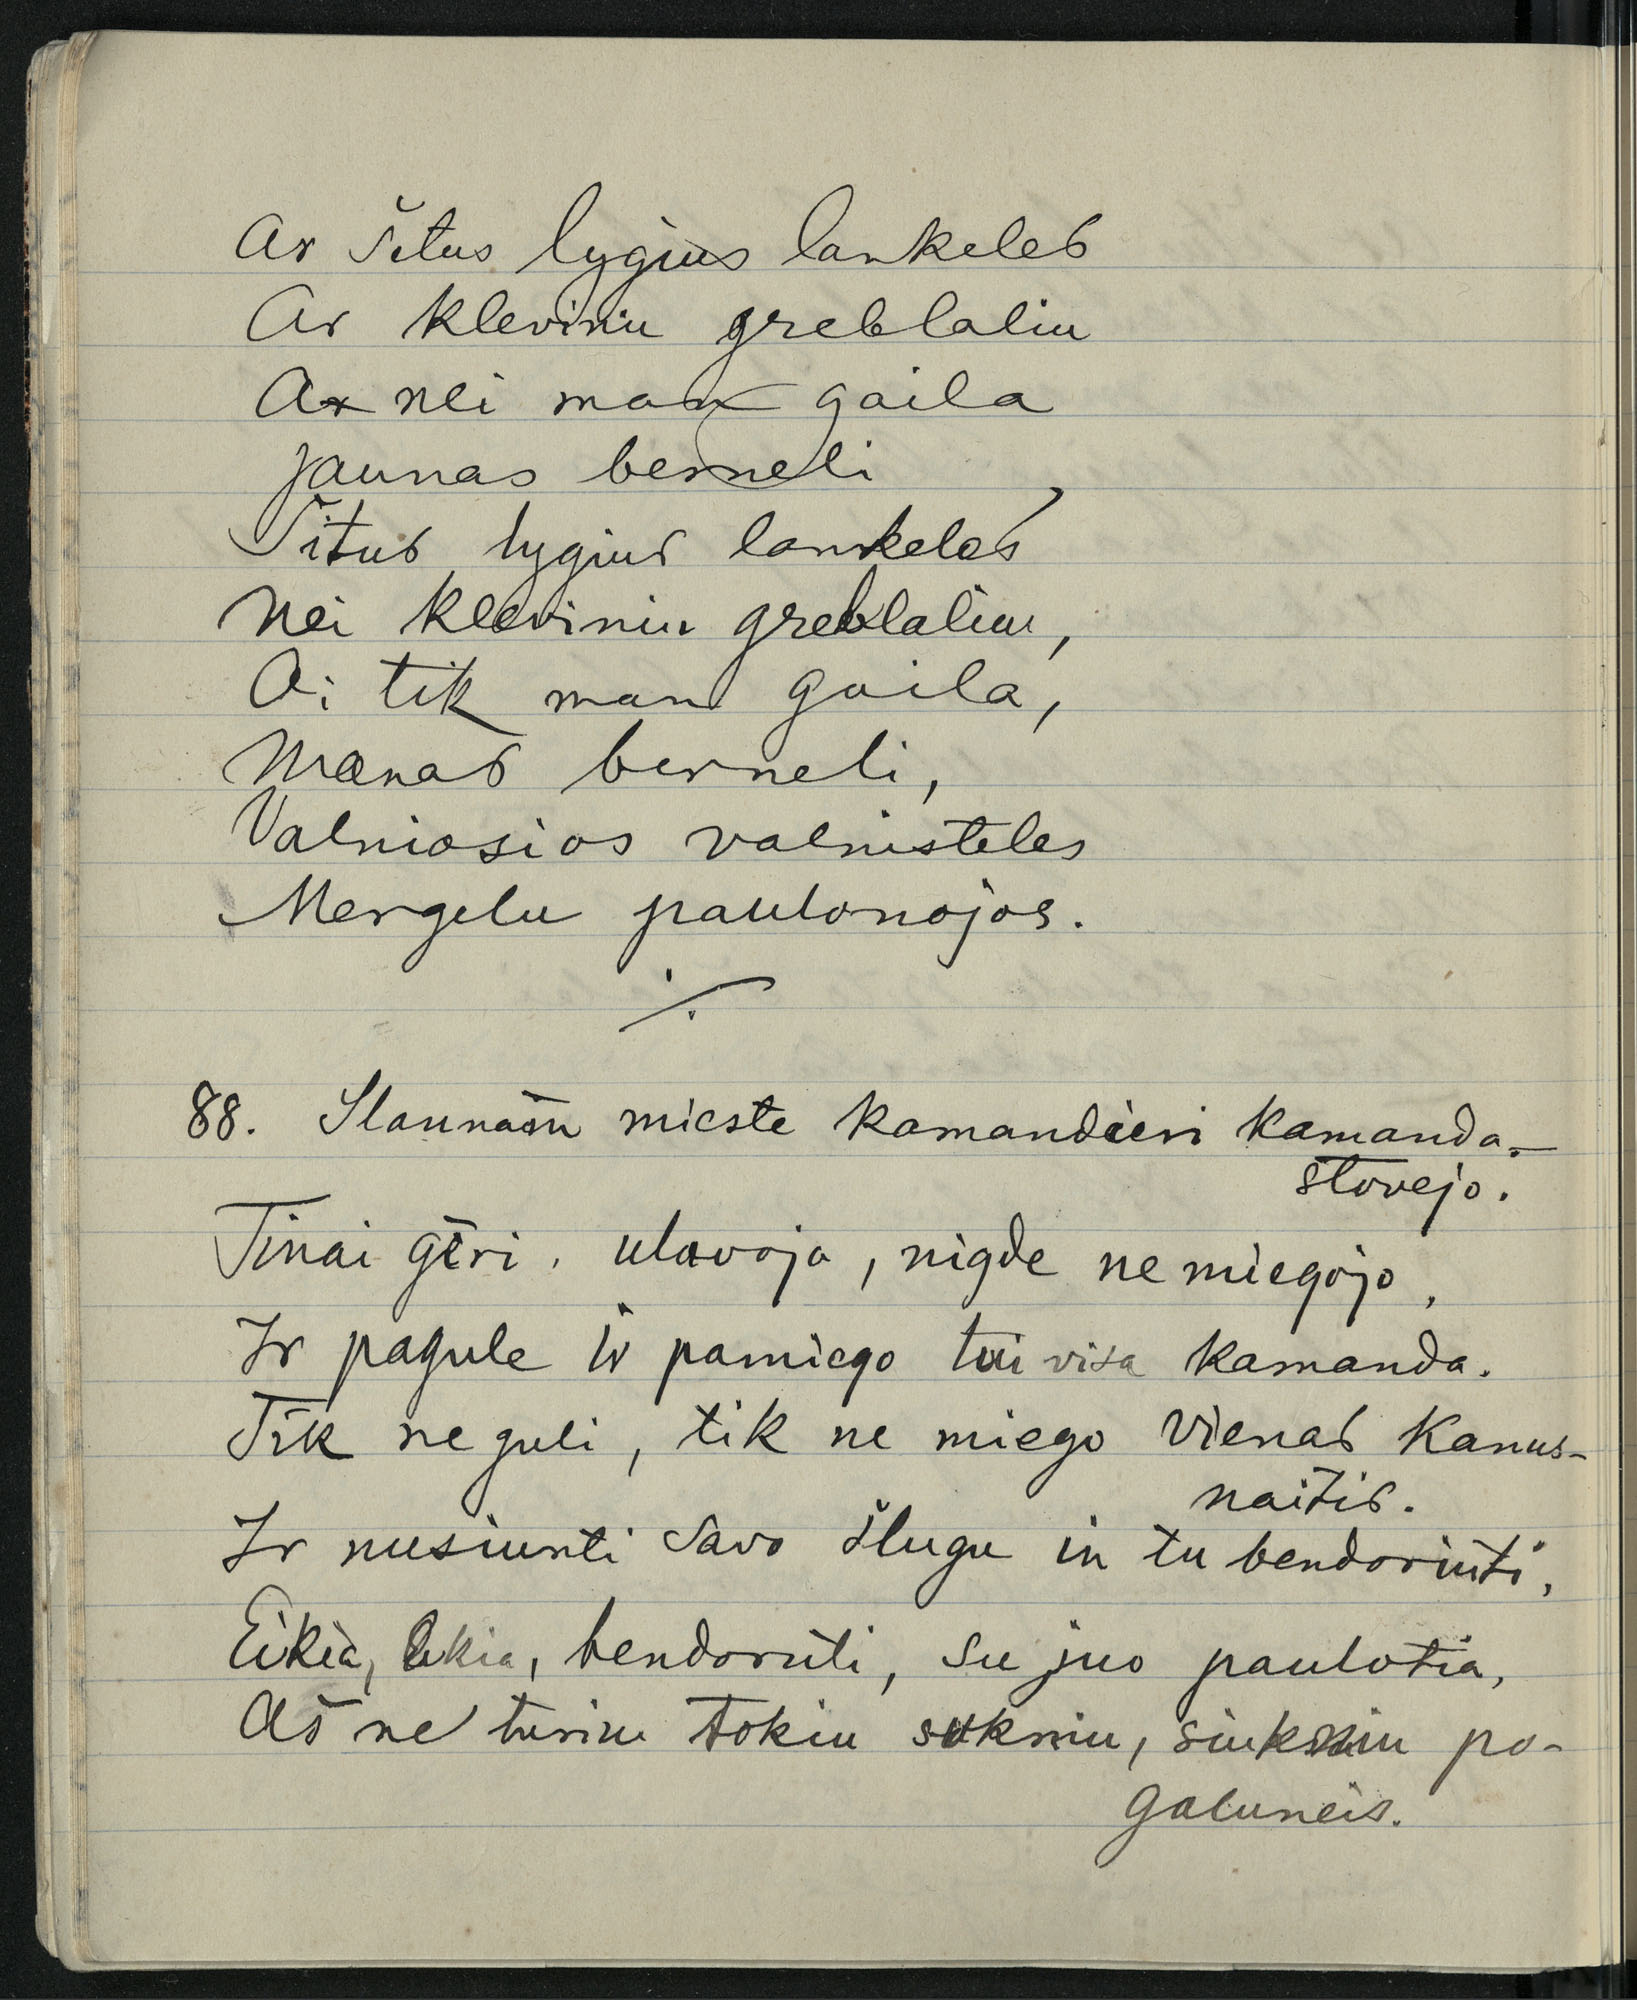 Ar šitus lygius lankeles
Ar kleviniu greblaliu
Ar nei man gaila
jaunas berneli
Šitus lygius lankeles
Nei kleviniu greblaliu,
Oi tik man gaila,
Manas berneli,
Valniosios valnisteles
Mergelu paulonojos.
88. Slaunam mieste kamandieri kamanda
stovejo.
Tinai gėri, ulavoja, nigde ne miegojo,
Ir pagule ir pamiego tai visa kamanda.
Tik ne guli, tik ne miego vienas kanus-
naitis.
Ir nusiunti savo šlugu in tu bendoriuti,
Eikia, eikia, bendoriuti, su juo paulotia,
Aš ne turiu tokiu sukniu, siukniu po-
galuneis.